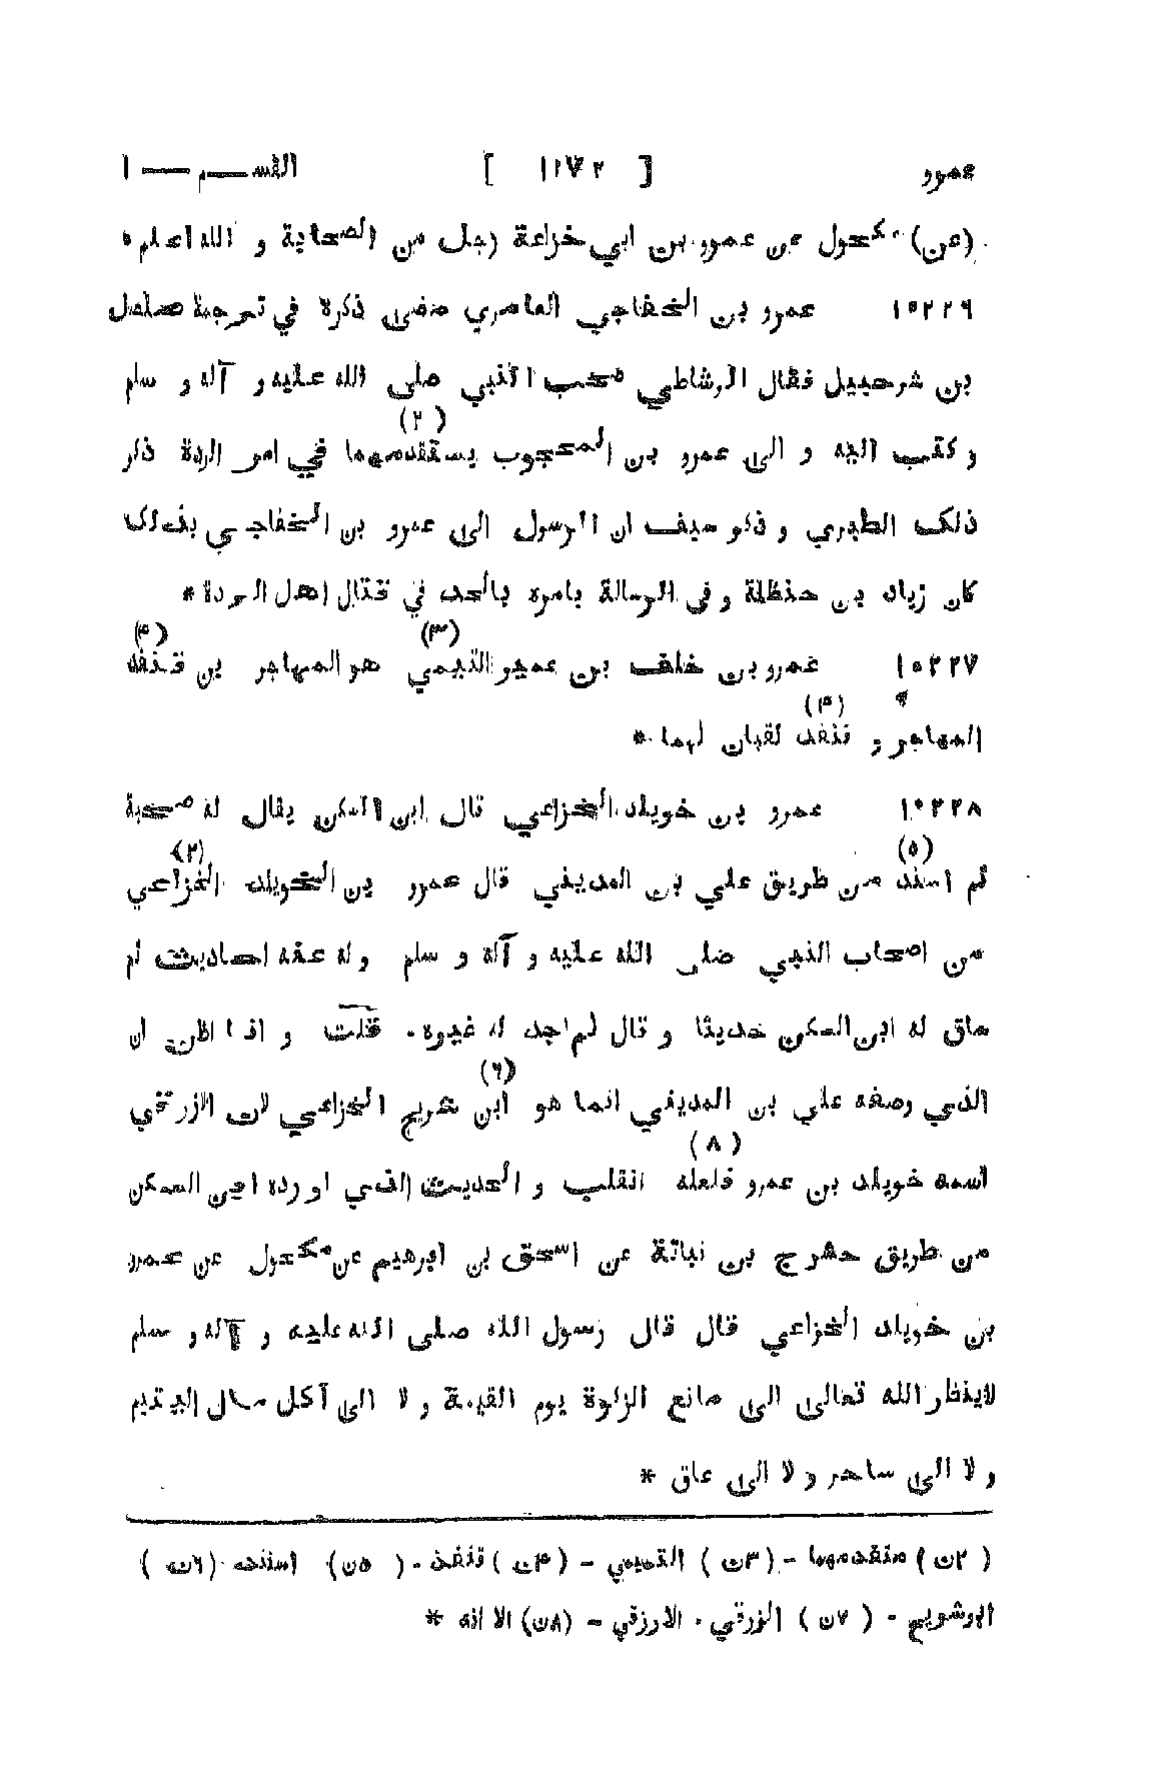 عمرو [ ١١٧٢ ] القسم — ١
(عن) مكحول عن عمرو بن ابي خزاعة رجل من الصحابة و الله اعلم *
١٠٢٢٦ عمرو بن الخفاجي العامري مضى ذكره في ترجمة صلصل
بن شرحبيل فقال الرشاطي صحب النبي صلى الله عليه و آله و سلم
و كتب اليه و الى عمرو بن المحجوب يستقدمهما (٢) في امر الردة ذكر
ذلك الطبري و ذكر سيف ان الرسول الى عمرو بن الخفاجي بذلك
كان زياد بن حنظلة و في الرسالة يامره بالجد في قتال اهل الردة *
١٠٢٢٧ عمرو بن خلف بن عمير التيمي (٣) هو المهاجر بن قنفد (٤)
المهاجر و قنفد (٤) لقبان لهما *
١٠٢٢٨ عمرو بن خويلد الخزاعي قال ابن السكن يقال له صحبة
ثم اسند (٥) من طريق علي بن المديني قال عمرو بن الخويلد (٢) الخزاعي
من اصحاب النبي صلى الله عليه و آله و سلم و له عنه احاديث ثم
ساق له ابن السكن حديثا و قال لم اجد له غيره - قلت و انا اظن ان
الذي وصفه علي بن المديني انما هو ابن شريح (٦) الخزاعي لان الازرقي
اسمه خويلد بن عمرو فلعله (٨) انقلب و الحديث الذي اورده ابن السكن
من طريق حشرج بن نباتة عن اسحق بن ابرهيم عن مكحول عن عمرو
بن خويلد الخزاعي قال قال رسول الله صلى الله عليه و آله و سلم
لا ينظر الله تعالى الى مانع الزكوة يوم القيمة و لا الى آكل مال اليتيم
و لا الى ساحر و لا الى عاق *
( ٢ن ) متقدمهما - ( ٣ن ) التميمي - ( ٤ن ) قنفذ - ( ٥ن ) اسنده ( ٦ن )
ابو شريح - ( ٧ن ) الزرقي - الارزقي - ( ٨ن ) الا انه *